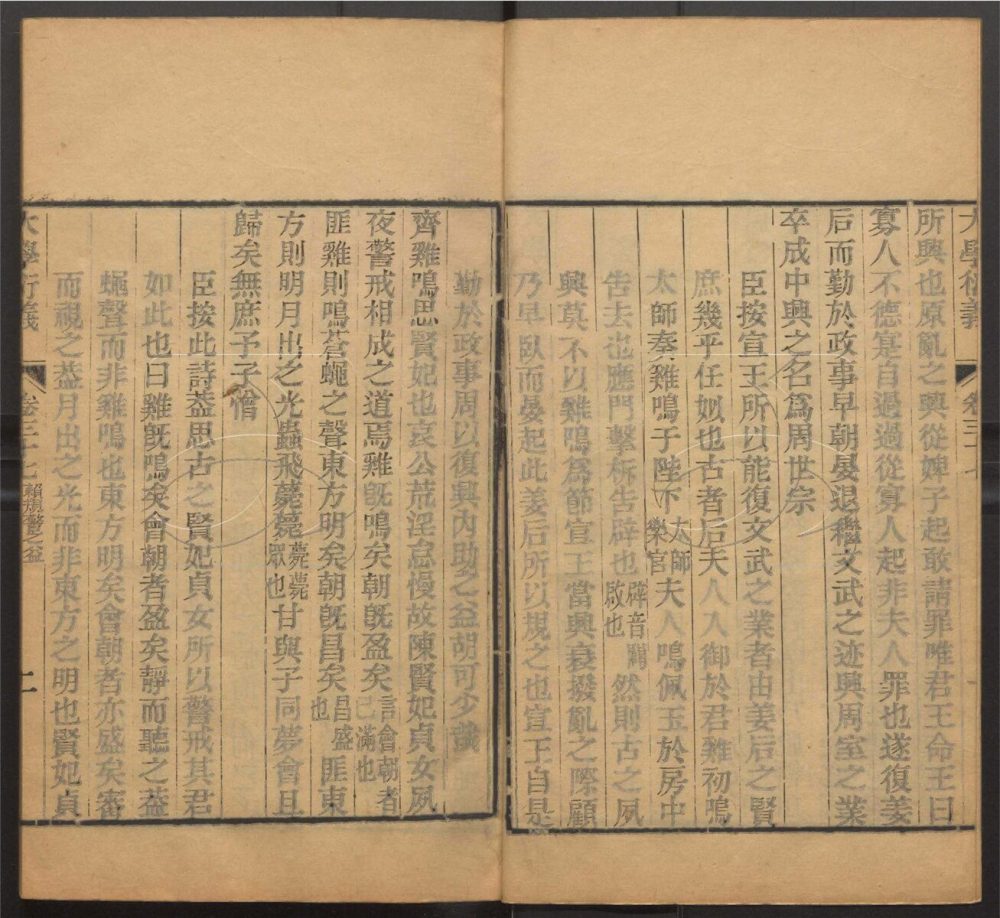 大學衍義
卷三十七
所興也原亂之興從婢子起敢請罪唯君王命王曰
寡人不德寔自過過從寡人起非夫人罪也遂復姜
后而勤於政事早朝晏退繼文武之迹興周室之業
卒成中興之名爲周世宗
臣按宣王所以能復文武之業者由姜后之賢
庶幾乎任姒也古者后夫人入御於君雞初鳴
太師奏雞鳴于陛下太師樂官夫人鳴佩玉於房中
告去也應門擊柝告辟也辟音闢啟也然則古之夙
興莫不以雞鳴爲節宣王當興衰撥亂之際顧
乃早臥而晏起此姜后所以規之也宣王自是
勤於政事周以復興內助之益胡可少哉
齊雞鳴思賢妃也哀公荒淫怠慢故陳賢妃貞女夙
夜警戒相成之道焉雞旣鳴矣朝旣盈矣言會朝者已滿也
匪雞則鳴蒼蠅之聲東方明矣朝旣昌矣昌盛也匪東
方則明月出之光蟲飛薨薨薨薨眾也甘與子同夢會且
歸矣無庶予子憎
臣按此詩葢思古之賢妃貞女所以警戒其君
如此也曰雞旣鳴矣會朝者盈矣靜而聽之葢
蠅聲而非雞鳴也東方明矣會朝者亦盛矣審
而視之葢月出之光而非東方之明也賢妃貞
大學衍義
卷三十七 賴規警之益
二